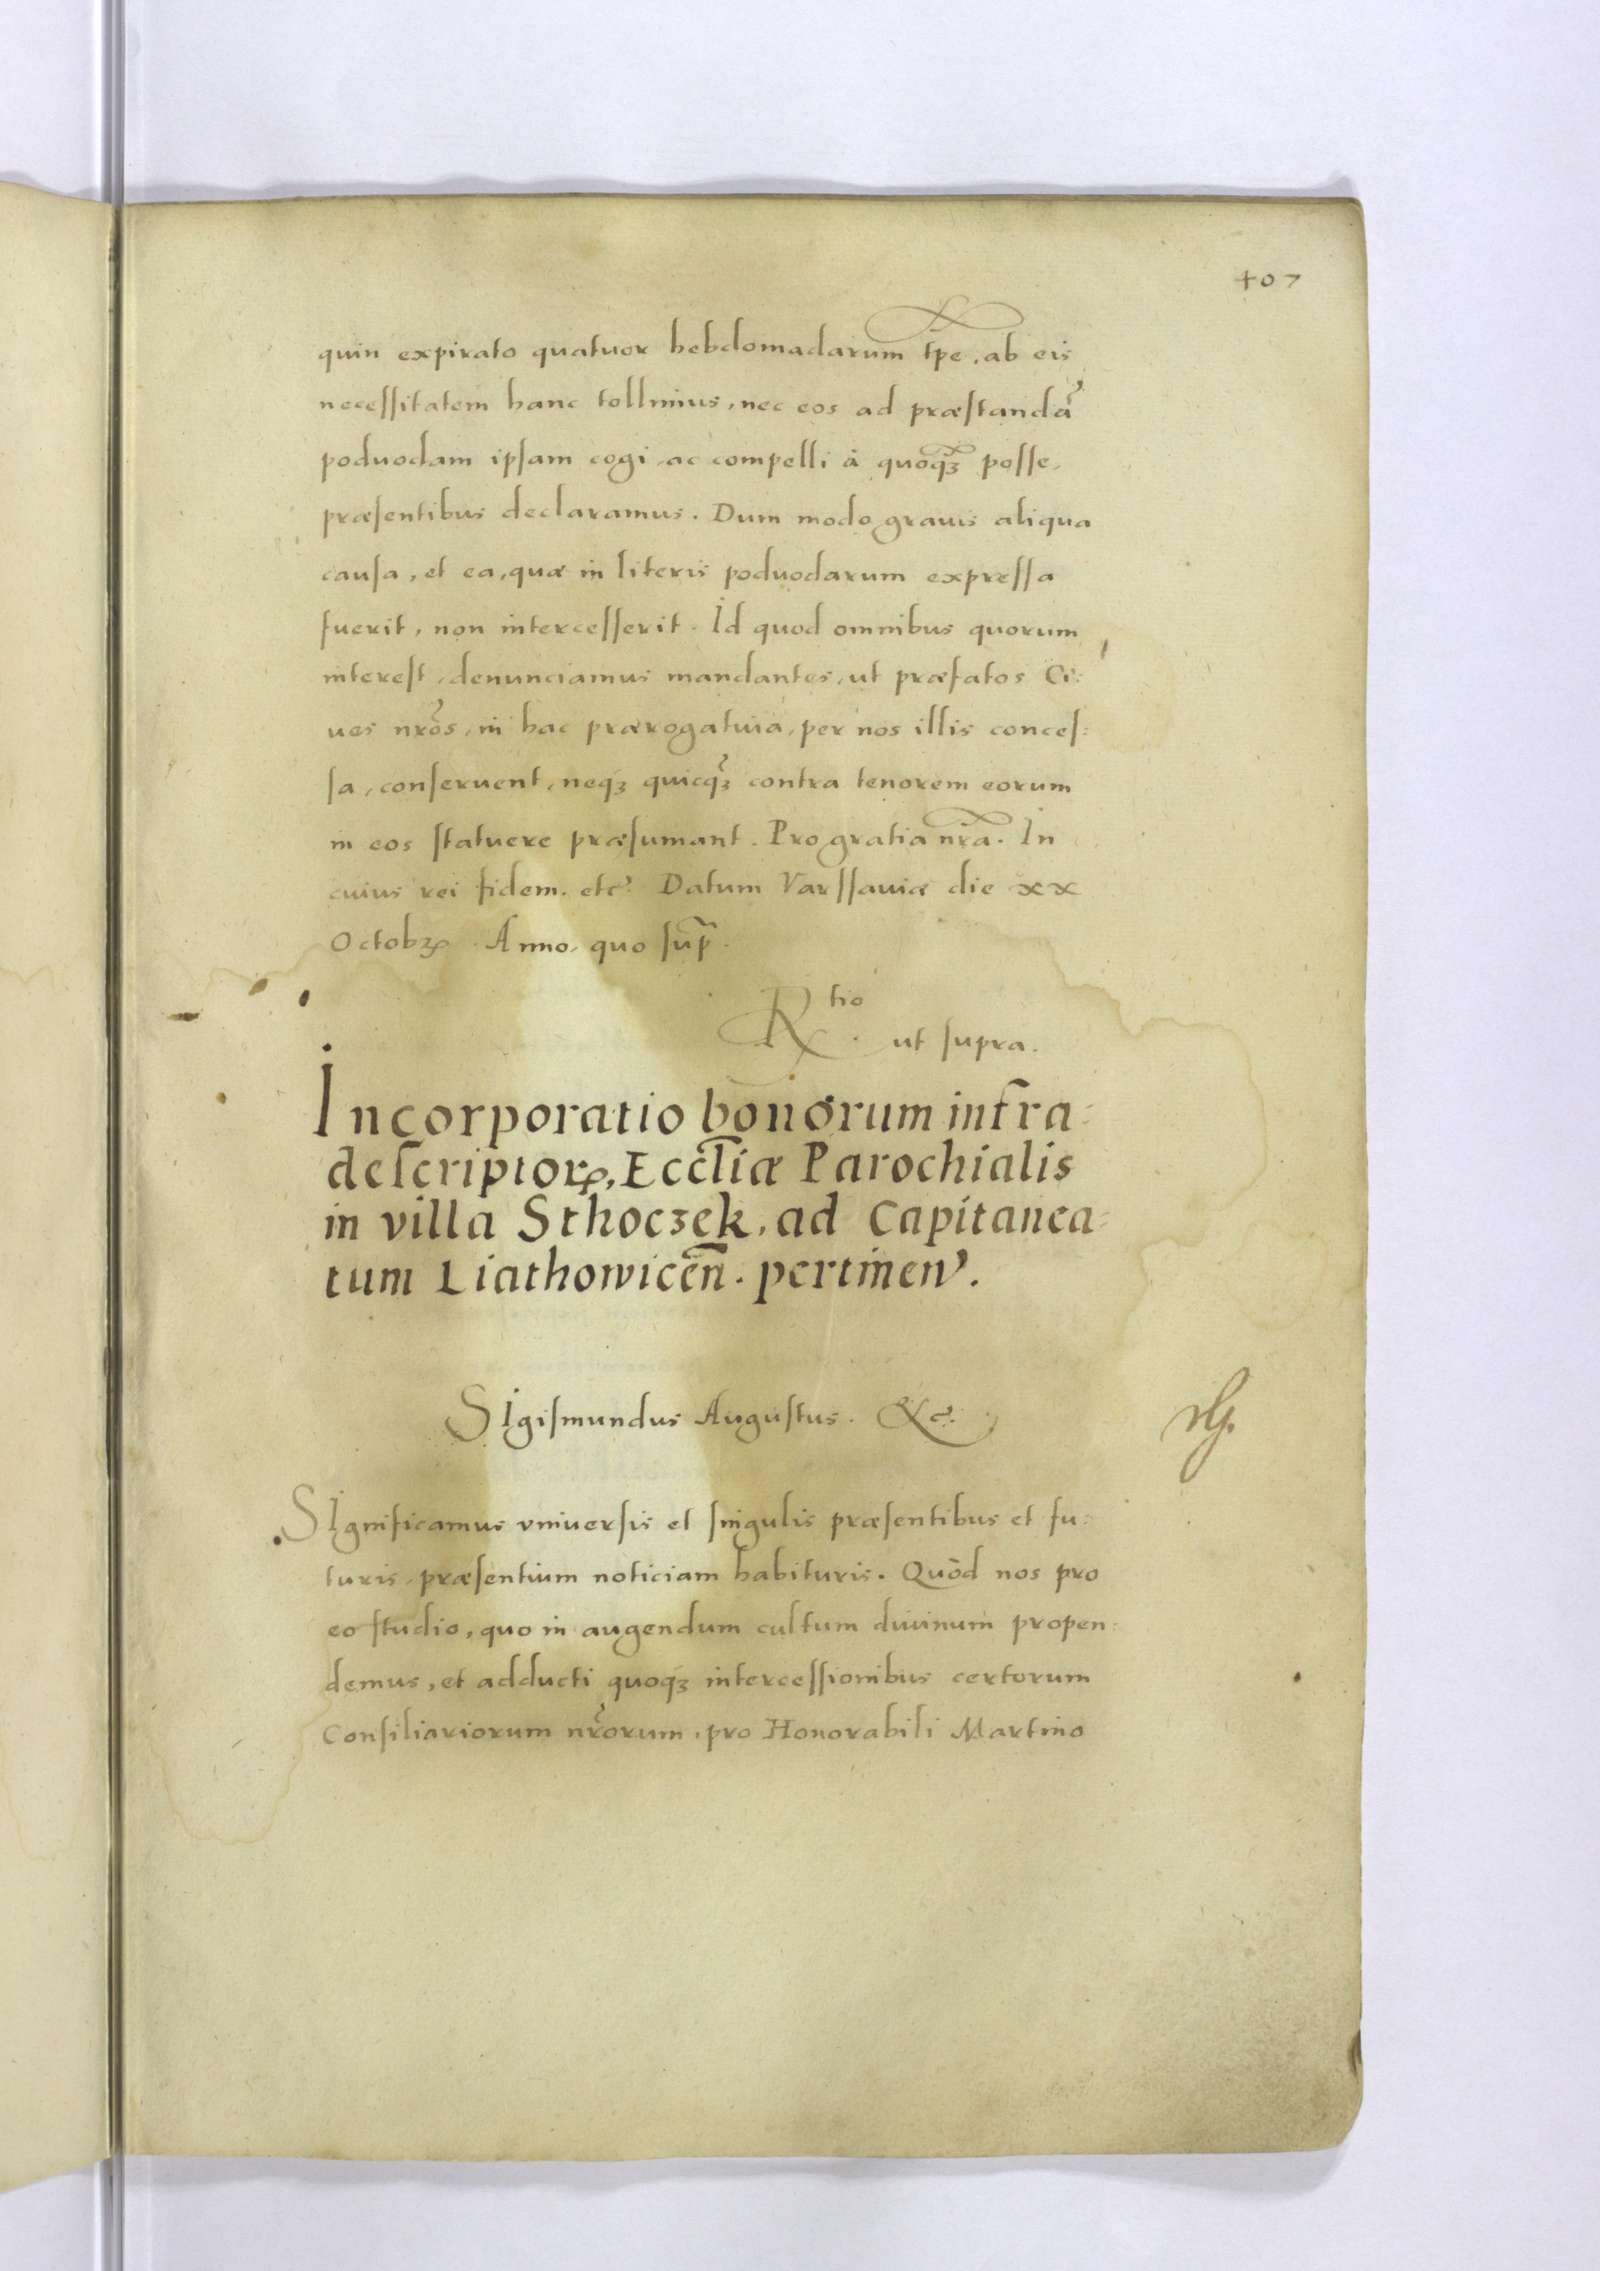 407
quin expirato quatuor hebdomadarum tp̄e, ab eis
necessitatem hanc tollimus, nec eos ad præstandā
poduodam ipsam cogi, ac compelli à quoqꝫ posse,
præsentibus declaramus. Dum modo grauis aliqua
causa, et ea, quæ in literis poduodarum expressa
fuerit, non intercesserit. Id quod omnibus quorum
interest, denunciamus mandantes, ut præfatos Ci:
ues nr̄os, in hac prærogatiua, per nos illis conces:
sa, conseruent, neqꝫ quicqꝫ contra tenorem eorum
in eos statuere præsumant. Pro gratia nr̄a. In
cuius rei fidem. etc. Datum Varssauiæ die xx
Octobꝝ. Anno, quo sup̄.
Rtio
ut supra.
Incorporatio bonorum infra:
descriptoꝝ, Eccl̄iæ Parochialis
in villa Sthoczek, ad Capitanea:
tum Liathowicen̄. pertinen̄.
SIgismundus Augustus. &c.
SIgnificamus vniuersis et singulis præsentibus et fu:
turis, præsentium noticiam habituris. Quòd nos pro
eo studio, quo in augendum cultum diuinum propen:
demus, et adducti quoqꝫ intercessionibus certorum
Consiliariorum nr̄orum, pro Honorabili Martino